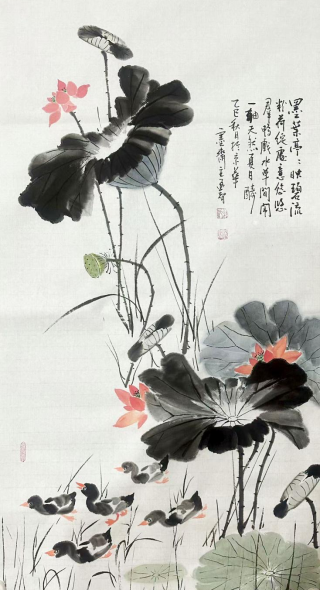 墨葉亭亭映碧流
粉荷綻處意悠悠
群鴨戲水草間鬧
一軸天然夏日酬
乙巳秋月於京華